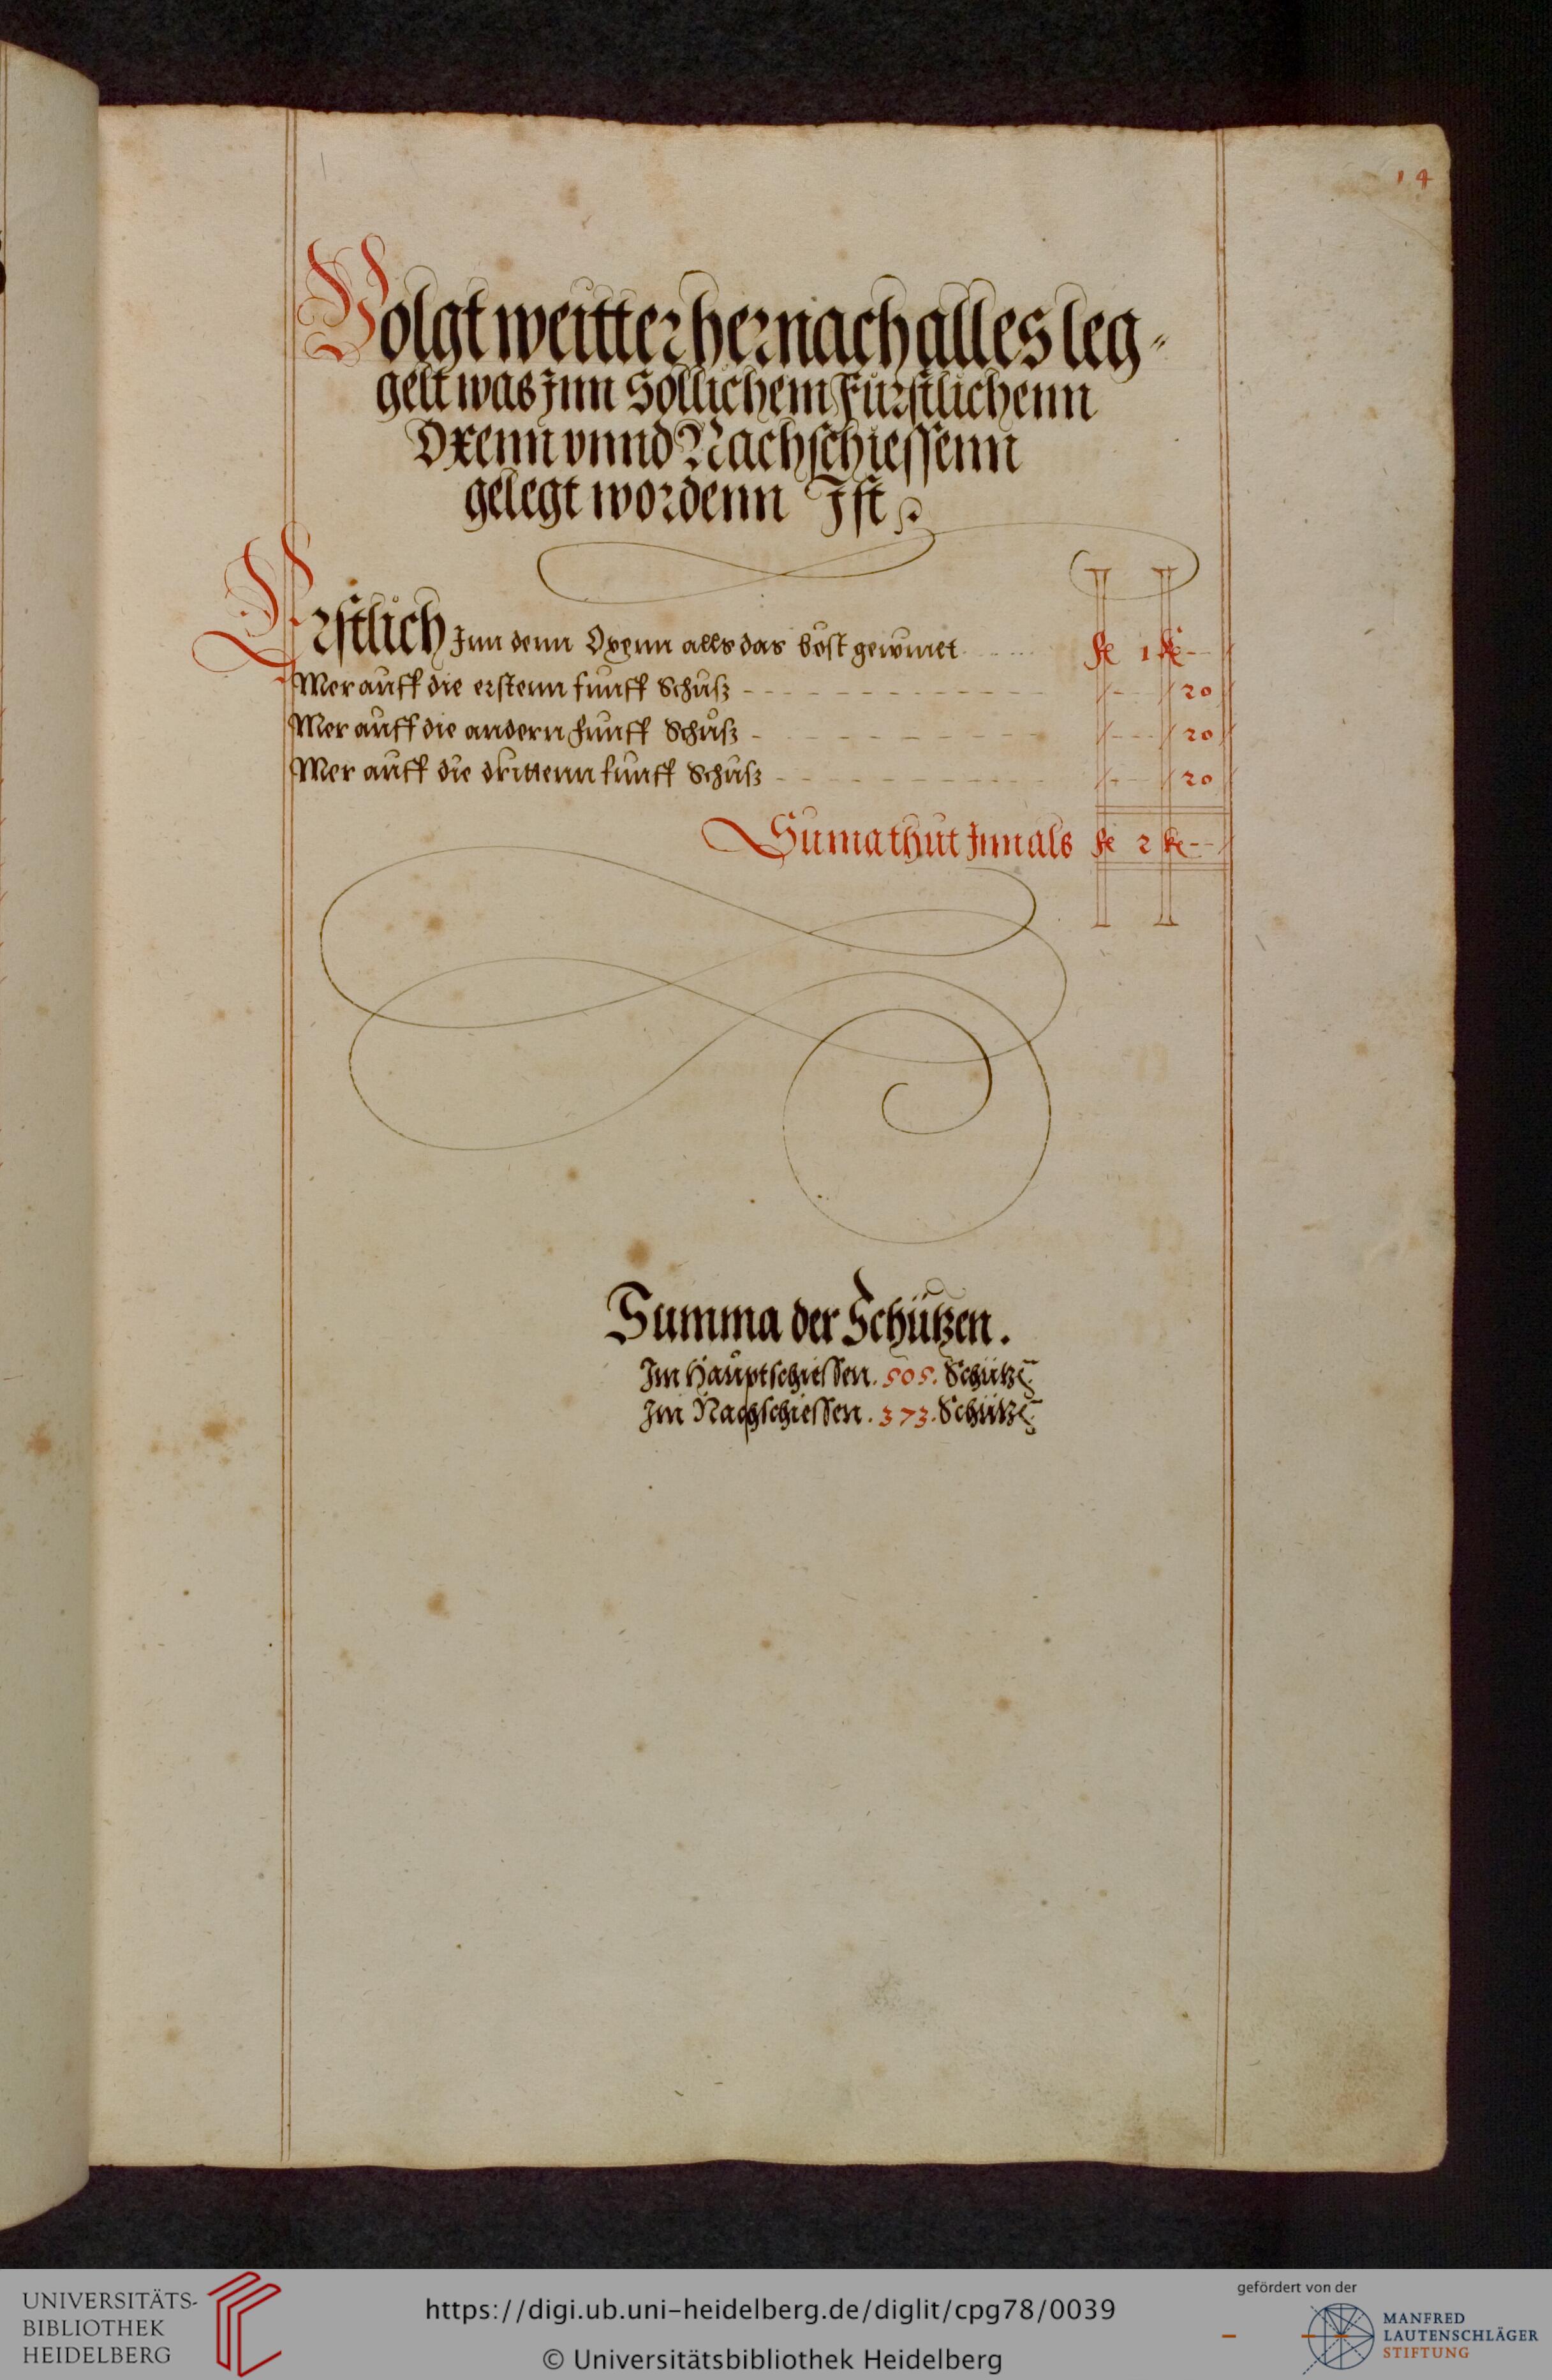 14
Volgt weitter hernach alles leg-
gelt was Inn Sollichem Fürstlichenn
Oxenn vnnd Nachschiessenn
gelegt wordenn Ist
Erstlich Inn denn Oxenn alls das böst gewinnet fl 1 kr --
Mer auff die erstenn funff Schuß - - 20
Mer auff die andern funff Schuß - - 20
Mer auff die drittenn funff Schuß - - 20
Suma thut Inn als fl 2 kr --
Summa der Schützen.
Im Hauptschiessen. 505. Schütze̅
Im Nachschiessen. 373. Schütze̅
UNIVERSITÄTS-
BIBLIOTHEK
HEIDELBERG
https://digi.ub.uni-heidelberg.de/diglit/cpg78/0039
© Universitätsbibliothek Heidelberg
gefördert von der
MANFRED
LAUTENSCHLÄGER
STIFTUNG